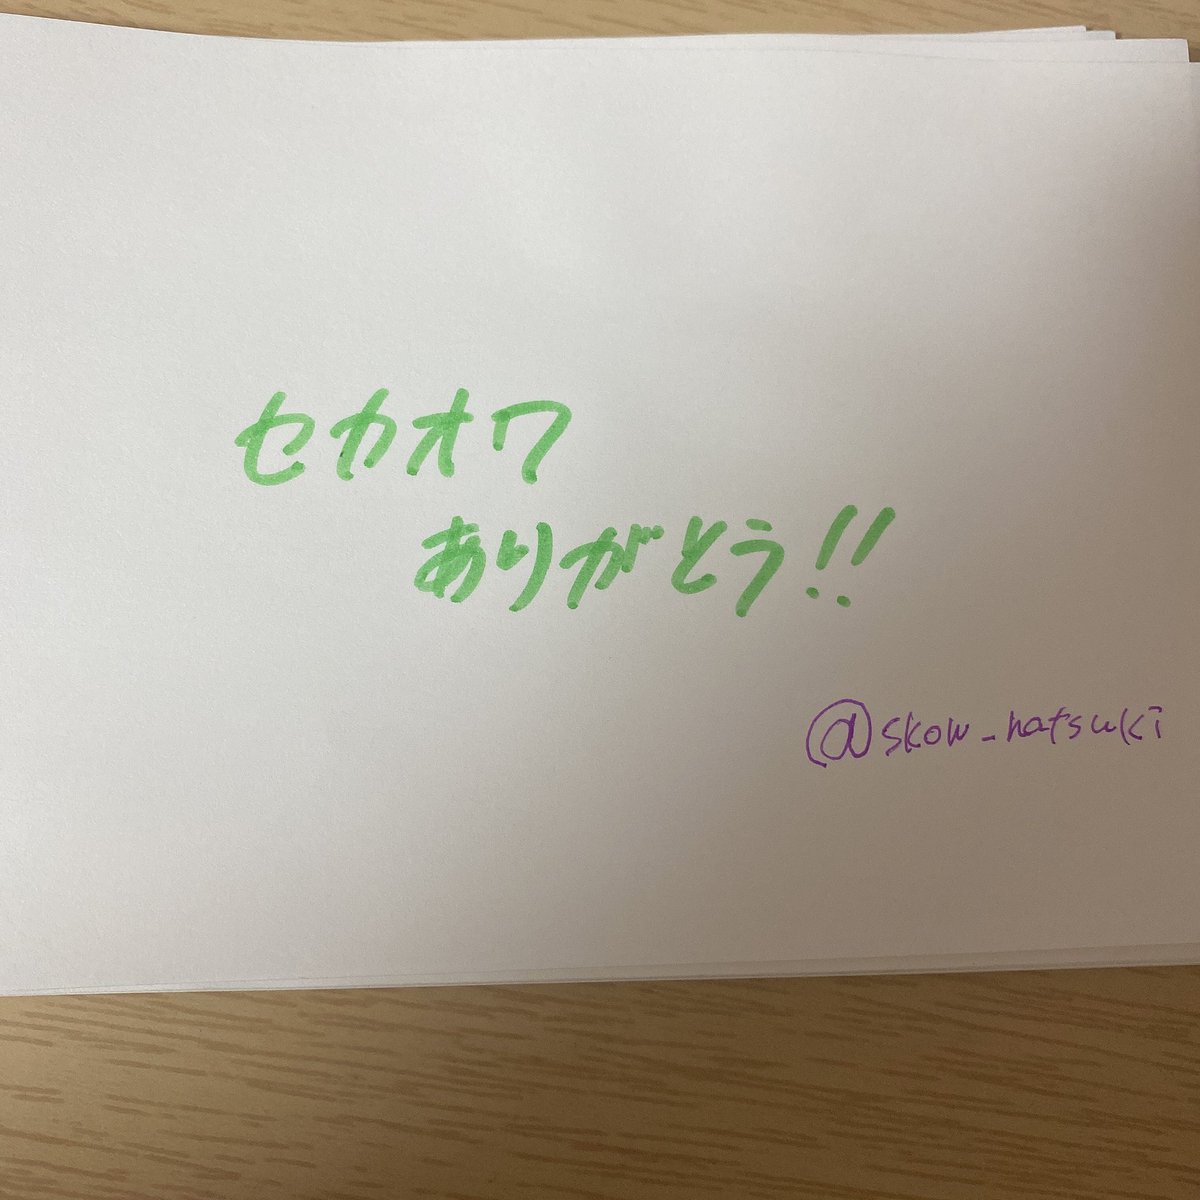 セカオワ
ありがとう!!
@skow_natsuki